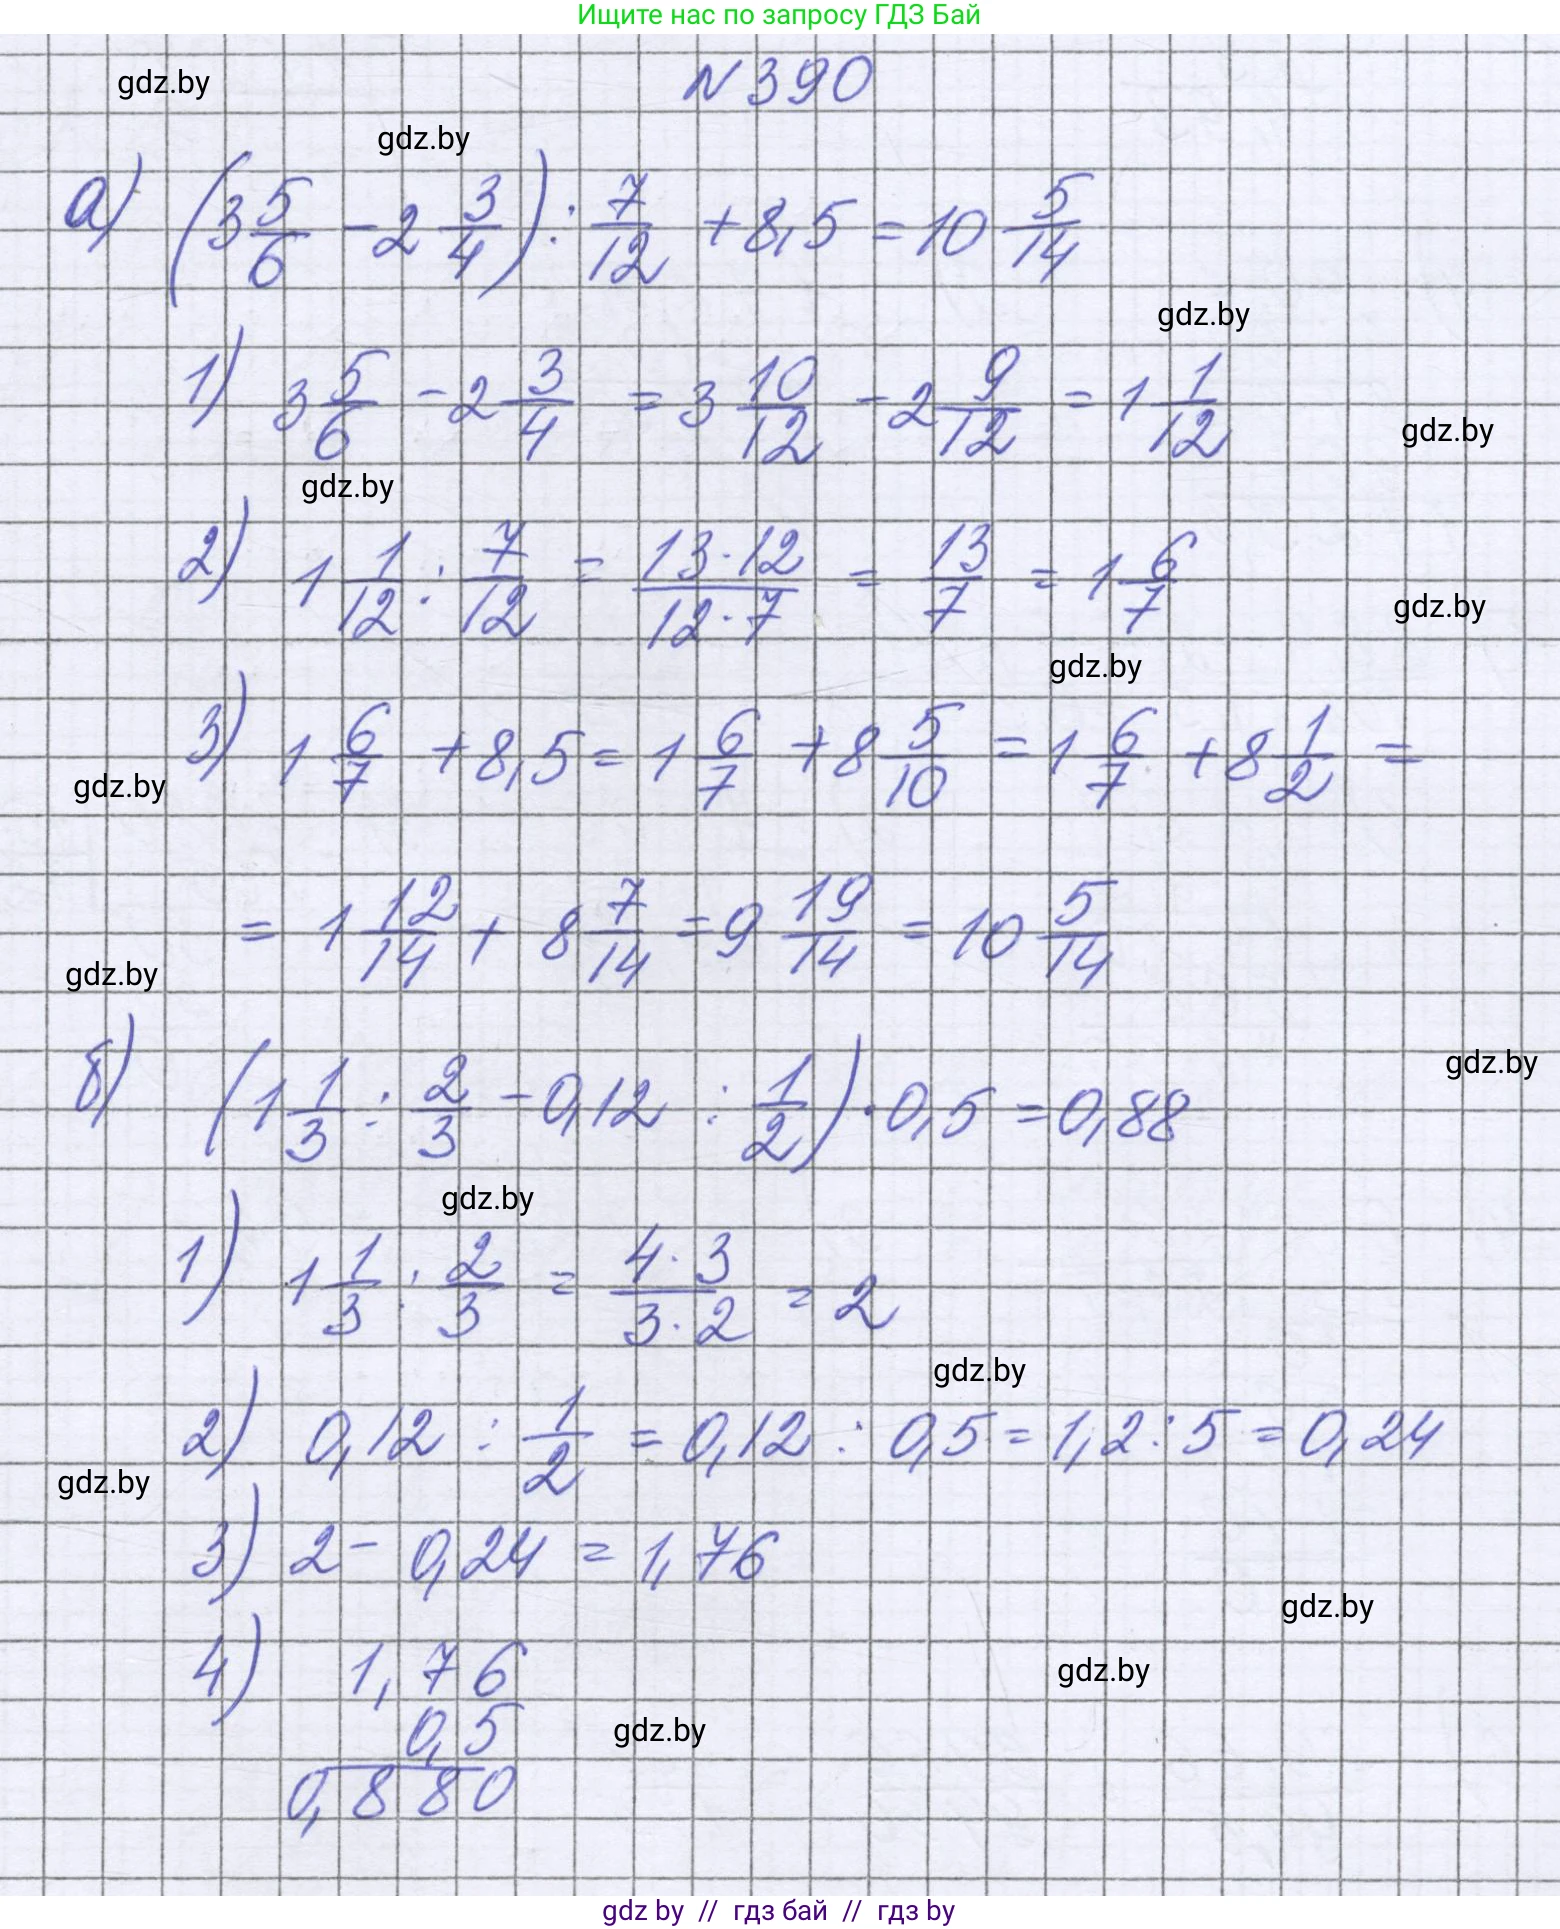 Ищите нас по запросу ГДЗ Бай
gdz.by
N 390
gdz.by
а) (3 5/6 - 2 3/4) : 7/12 + 8,5 = 10 5/14
gdz.by
1) 3 5/6 - 2 3/4 = 3 10/12 - 2 9/12 = 1 1/12
gdz.by
gdz.by
2) 1 1/12 : 7/12 = 13·12/12·7 = 13/7 = 1 6/7
gdz.by
gdz.by
3) 1 6/7 + 8,5 = 1 6/7 + 8 5/10 = 1 6/7 + 8 1/2 =
gdz.by
= 1 12/14 + 8 7/14 = 9 19/14 = 10 5/14
gdz.by
gdz.by
б) (1 1/3 : 2/3 - 0,12 : 1/2) · 0,5 = 0,88
gdz.by
1) 1 1/3 : 2/3 = 4·3/3·2 = 2
gdz.by
2) 0,12 : 1/2 = 0,12 : 0,5 = 1,2 : 5 = 0,24
gdz.by
3) 2 - 0,24 = 1,76
gdz.by
4) 1,76
gdz.by
0,5
gdz.by
0,880
gdz by // гдз бай // гдз by